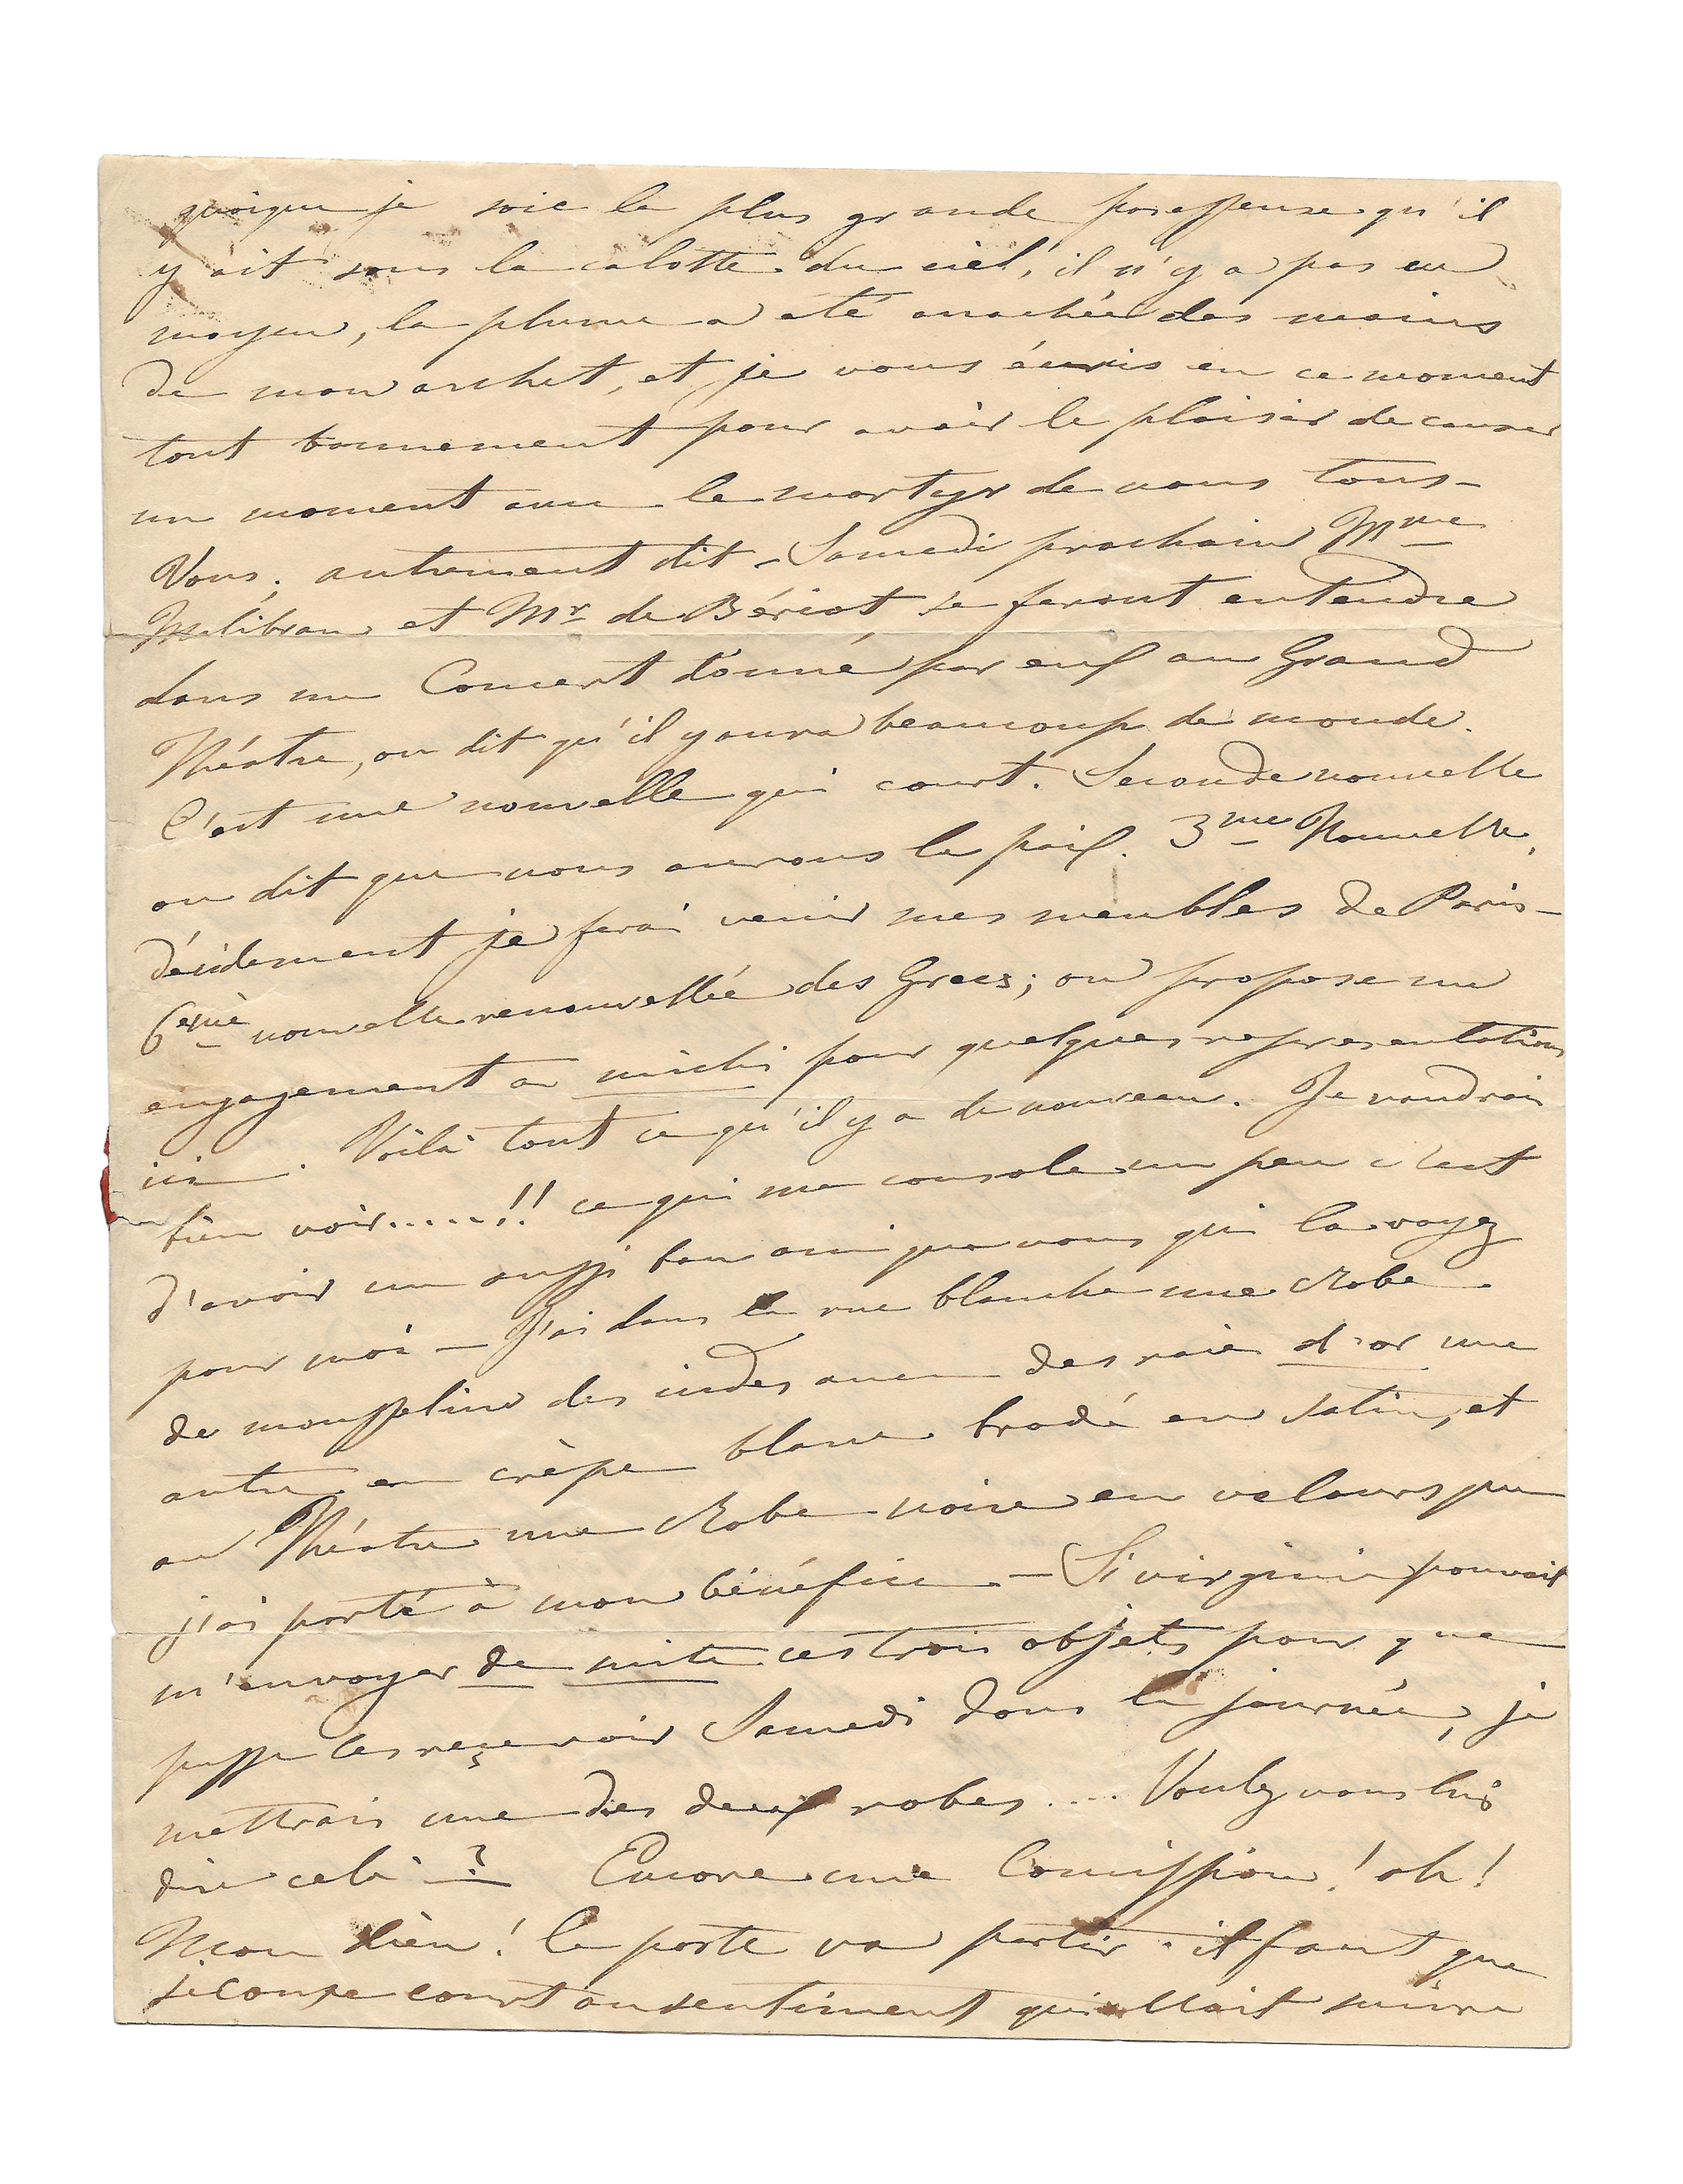 quoique je soie la plus grande paresseuse qu'il
y ait sous la calotte du ciel, il n'y a pas eu
moyen, la plume a été arrachée des mains
de mon archet, et je vous écuris en ce moment
tout bonnement pour avoir le plaisir de causer
un moment avec le martyr de nous tous –
Vous, autrement dit – Samedi prochain Mme
Malibran et Mr de Bériot se feront entendre
dans un Concert donné par eux au Grand
Théatre, on dit qu'il y aura beaucoup de monde.
C'est une nouvelle qui court. Seconde nouvelle
on dit que nous aurons la paix. 3me Nouvelle,
décidement je ferai venir mes meubles de Paris –
6eme nouvelle renouvellée des Grecs; on propose un
engagement a michi pour quelques representations
ici. Voilà tout ce qu'il y a de nouveau. Je voudrais
bien voir.....!! ce qui me console un peu c'est
d'avoir un aussi bon ami que vous qui la voyez
pour moi – J'ai dans la rue blanche une Robe
de mousseline des indes avec des raies d'or une
autre en crèpe blanc brodé en satin, et
au Théatre une Robe noire en velours que
j'ai porté à mon bénéfice. – Si virginie pouvait
m'envoyer de suite ces trois objets pour que
pusse les reçevoir Samedi dans la journée, je
mettrais une des deux robes .... Voulez vous lui
dire cela ? Encore une Comission ! oh !
Mon dieu ! la poste va partir. il faut que
je coupe court au sentiment qui allait suivre